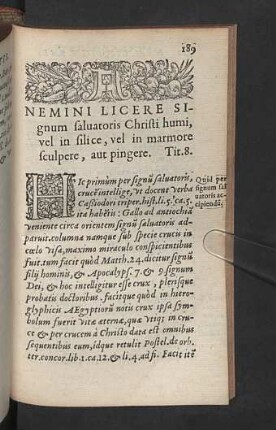 189
NEMINI LICERE SI-
gnum saluatoris Christi humi,
vel in silice, vel in marmore
sculpere, aut pingere. Tit.8.
HIc primùm per signũ saluatoris,
crucẽ intellige, vt docent verba
Cassiodori triper.hist.li.5.ca.5.
ita habẽtis: Gallo ad antiochiã
Quid per
signum sal
uatoris ac-
cipiendũ.
veniente circa orientem signũ saluatoris ad-
paruit. columna namque sub specie crucis in
cœlo visa, maximo miraculo conspicientibus
fuit. tum facit quòd Matth.24. dicitur signũ
filij hominis, & Apocalyps.7.& 9. signum
Dei, & hoc intelligitur esse crux, plerisque
probatis doctoribus. facitque quòd in hiero-
glyphicis AEgyptiorũ notis crux ipsa sym-
bolum fuerit vitæ æternæ, quæ vtiq; in cru-
ce & per crucem à Christo data est omnibus
sequentibus eum, idque retulit Postel.de or-
b. ter.concor.lib.1.ca.12.& li.4.ad fi. Facit itẽ